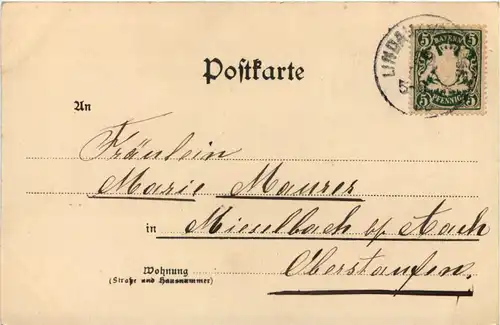 LINDAU
BAYERN
5 5
5 PFENNIG 5
Postkarte
An
Fräulein
Marie Maurer
in Mieselbach b/ Aach
Oberstaufen.
Wohnung
(Straße und Hausnummer)